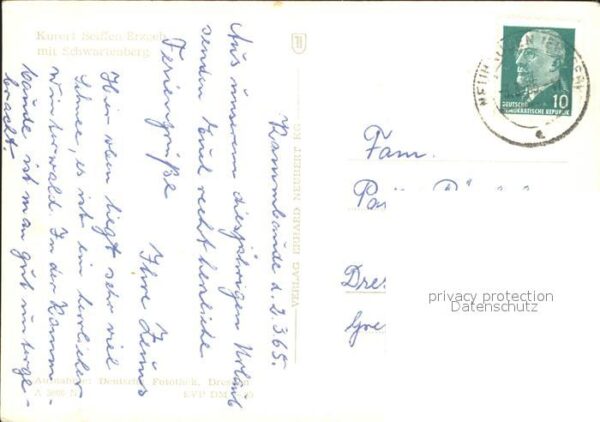 Kurort Seiffen Erzgeb.
mit Schwartenberg
Kammbaude d. 2.3.65.
Aus unserem diesjährigen Urlaub
senden Euch recht herzliche
Feriengrüße Ihre
Hier oben liegt sehr viel
Schnee, es ist ein herrlicher
Winterwald. In der Kamm-
baude ist man gut unterge-
bracht.
VERLAG GEBRER NEUBERT KG
Aufnahme: Deutsche Fotothek, Dresden
EVP DM
DEUTSCHE
DEMOKRATISCHE REPUBLIK
10
Fam.
Dre
privacy protection
Datenschutz